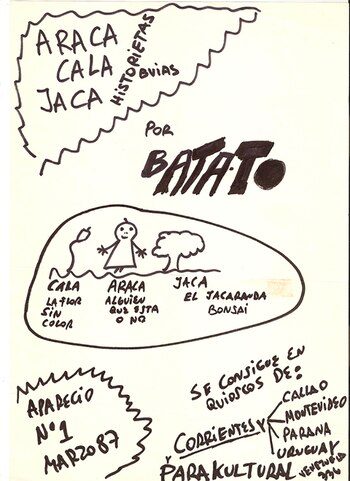 ARACA
CALA
JACA
HISTORIETAS
BUIAS
POR
BATATO
CALA
LA FLOR
SIN
COLOR
ARACA
ALGUIEN
QUE ESTA
O NO
JACA
EL JACARANDA
BONSAI
APARECIO
Nº 1
MARZO 87
SE CONSIGUE EN
QUIOSCOS DE:
CORRIENTES Y
CALLAO
MONTEVIDEO
PARANA
URUGUAY
Y PARAKULTURAL
VENEZUELA
336